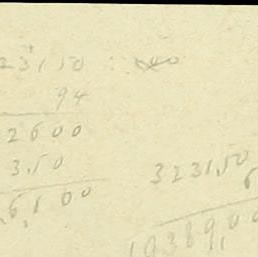 23150
94
2600
3.50
6,100
3231,50
6
19389,00